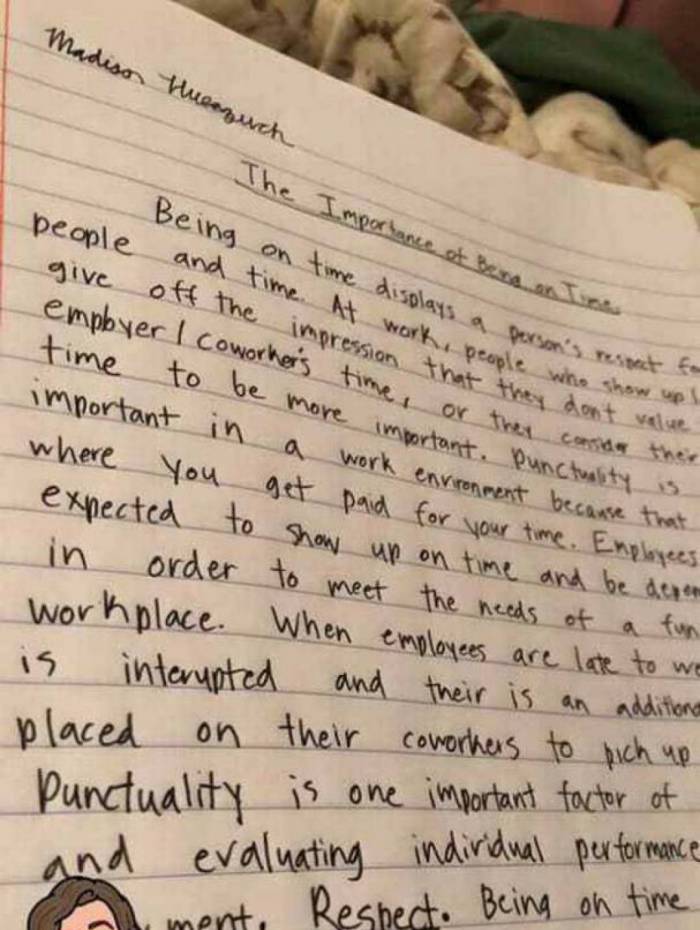 Madison
The Importance of Being on Time
Being on time displays a person's respect
people and time. At work, people who show up
give off the impression that they dont value
employer / coworker's time, or they consider their
time to be more important. punctuality is
important in a work environment because that
where you get paid for your time. Employees
expected to show up on time and be
in order to meet the needs of a
workplace. When employees are late to
is interupted and their is an
placed on their coworkers to pick up
Punctuality is one important factor of
and evaluating individual performance
ment. Respect. Being on time